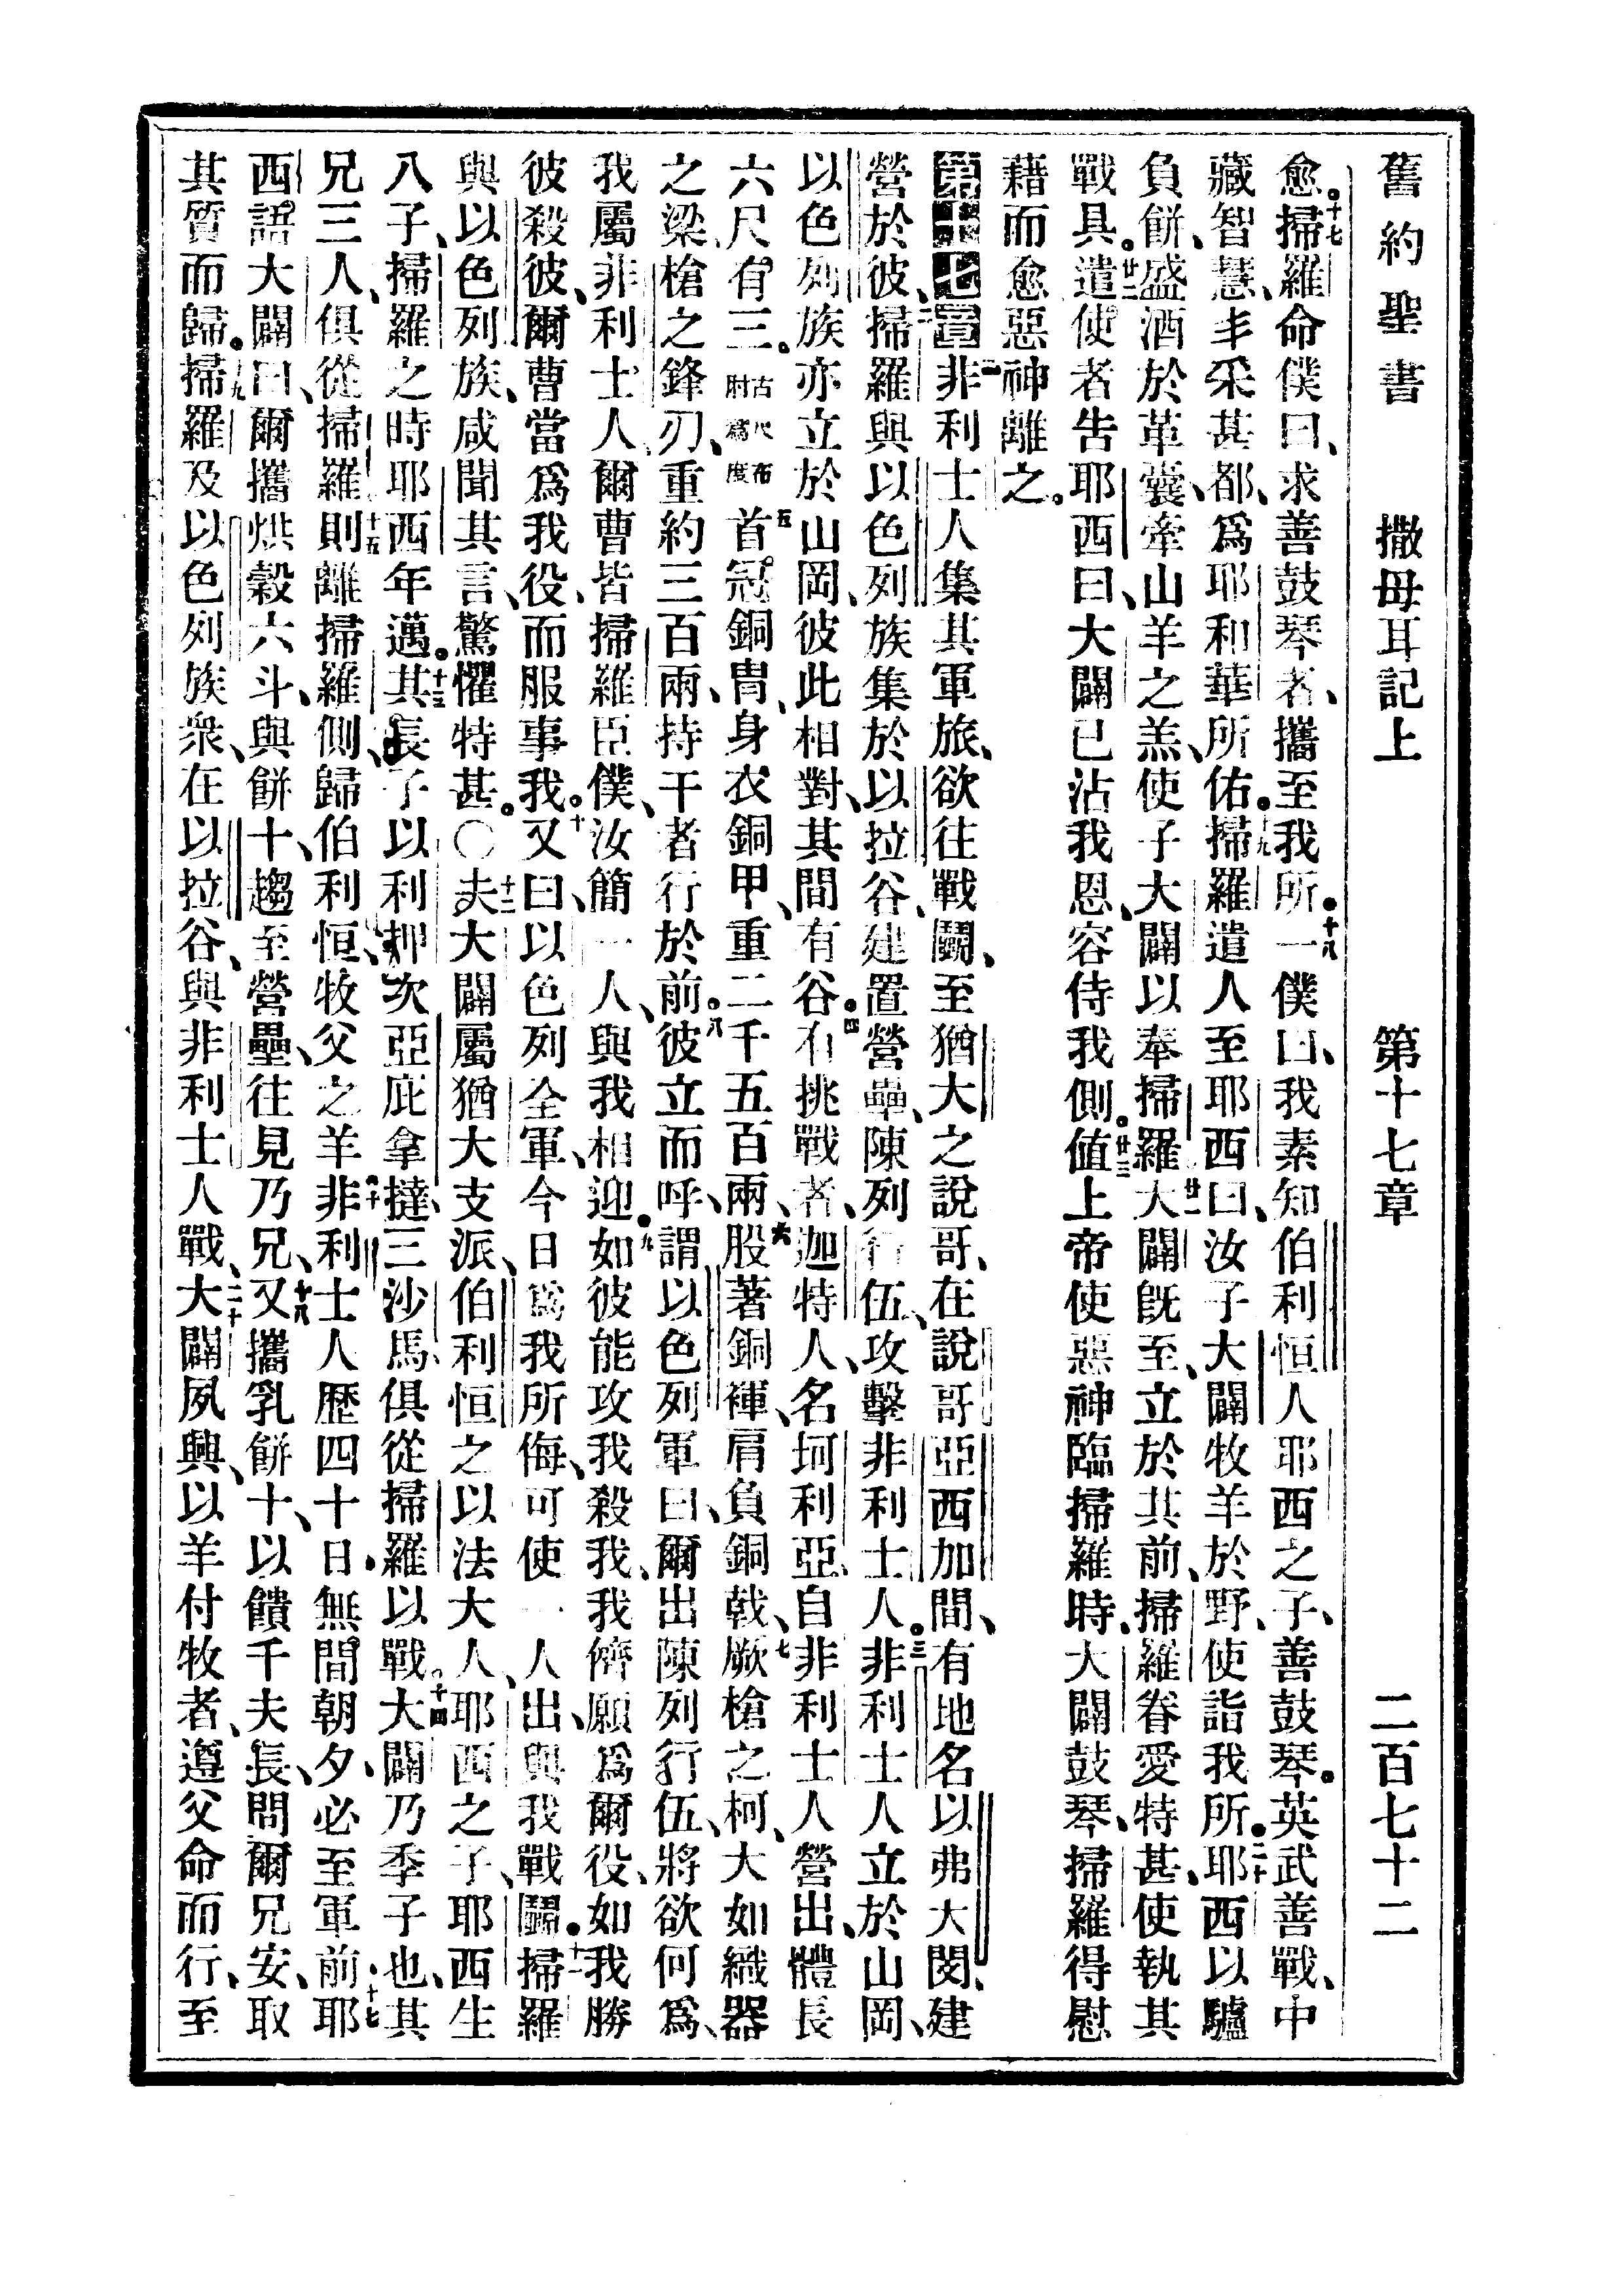 舊約聖書 撒母耳記上 第十七章 二百七十二
愈。十七掃羅命僕曰、求善鼓琴者、攜至我所。十八一僕曰、我素知伯利恒人耶西之子、善鼓琴。英武善戰、中
藏智慧、丰采甚都、爲耶和華所佑。十九掃羅遣人至耶西曰、汝子大闢牧羊於野、使詣我所。二十耶西以驢
負餅、盛酒於革囊、牽山羊之羔、使子大闢以奉掃羅。廿一大闢旣至、立於其前、掃羅眷愛特甚、使執其
戰具。廿二遣使者告耶西曰、大闢已沾我恩、容侍我側。廿三値上帝使惡神臨掃羅時、大闢鼓琴、掃羅得慰
藉而愈惡神離之。
第十七章 一非利士人集其軍旅、欲往戰鬬、至猶大之說哥、在說哥亞西加間、有地名以弗大閔、建
營於彼、二掃羅與以色列族集於以拉谷、建置營壘、陳列行伍、攻擊非利士人。三非利士人立於山岡、
以色列族亦立於山岡、彼此相對、其間有谷。四有挑戰者、迦特人、名坷利亞、自非利士人營出、體長
六尺有三。古尺布肘爲度五首冠銅冑、身衣銅甲、重二千五百兩、六股著銅褌、肩負銅戟、七厥槍之柯、大如織器
之梁、槍之鋒刃、重約三百兩、持干者行於前。八彼立而呼、謂以色列軍曰、爾出陳列行伍、將欲何爲、
我屬非利士人、爾曹皆掃羅臣僕、汝簡一人、與我相迎。九如彼能攻我殺我、我儕願爲爾役、如我勝
彼殺彼、爾曹當爲我役、而服事我。十又曰、以色列全軍、今日爲我所侮、可使一人出、與我戰鬬。十一掃羅
與以色列族、咸聞其言、驚懼特甚。〇十二夫大闢屬猶大支派、伯利恒之以法大人、耶西之子、耶西生
八子、掃羅之時、耶西年邁。十三其長子以利押、次亞庇拿撻、三沙馬、俱從掃羅以戰。十四大闢乃季子也、其
兄三人、俱從掃羅、十五則離掃羅側、歸伯利恒、牧父之羊。十六非利士人歷四十日、無間朝夕、必至軍前。十七耶
西語大闢曰、爾攜烘穀六斗、與餅十、趨至營壘、往見乃兄、十八又攜乳餅十、以饋千夫長、問爾兄安、取
其質而歸。十九掃羅及以色列族衆、在以拉谷、與非利士人戰、二十大闢夙興、以羊付牧者、遵父命而行、至